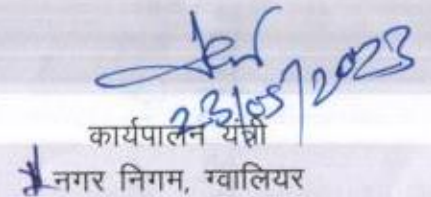 23/05/2023
कार्यपालन यंत्री
नगर निगम, ग्वालियर